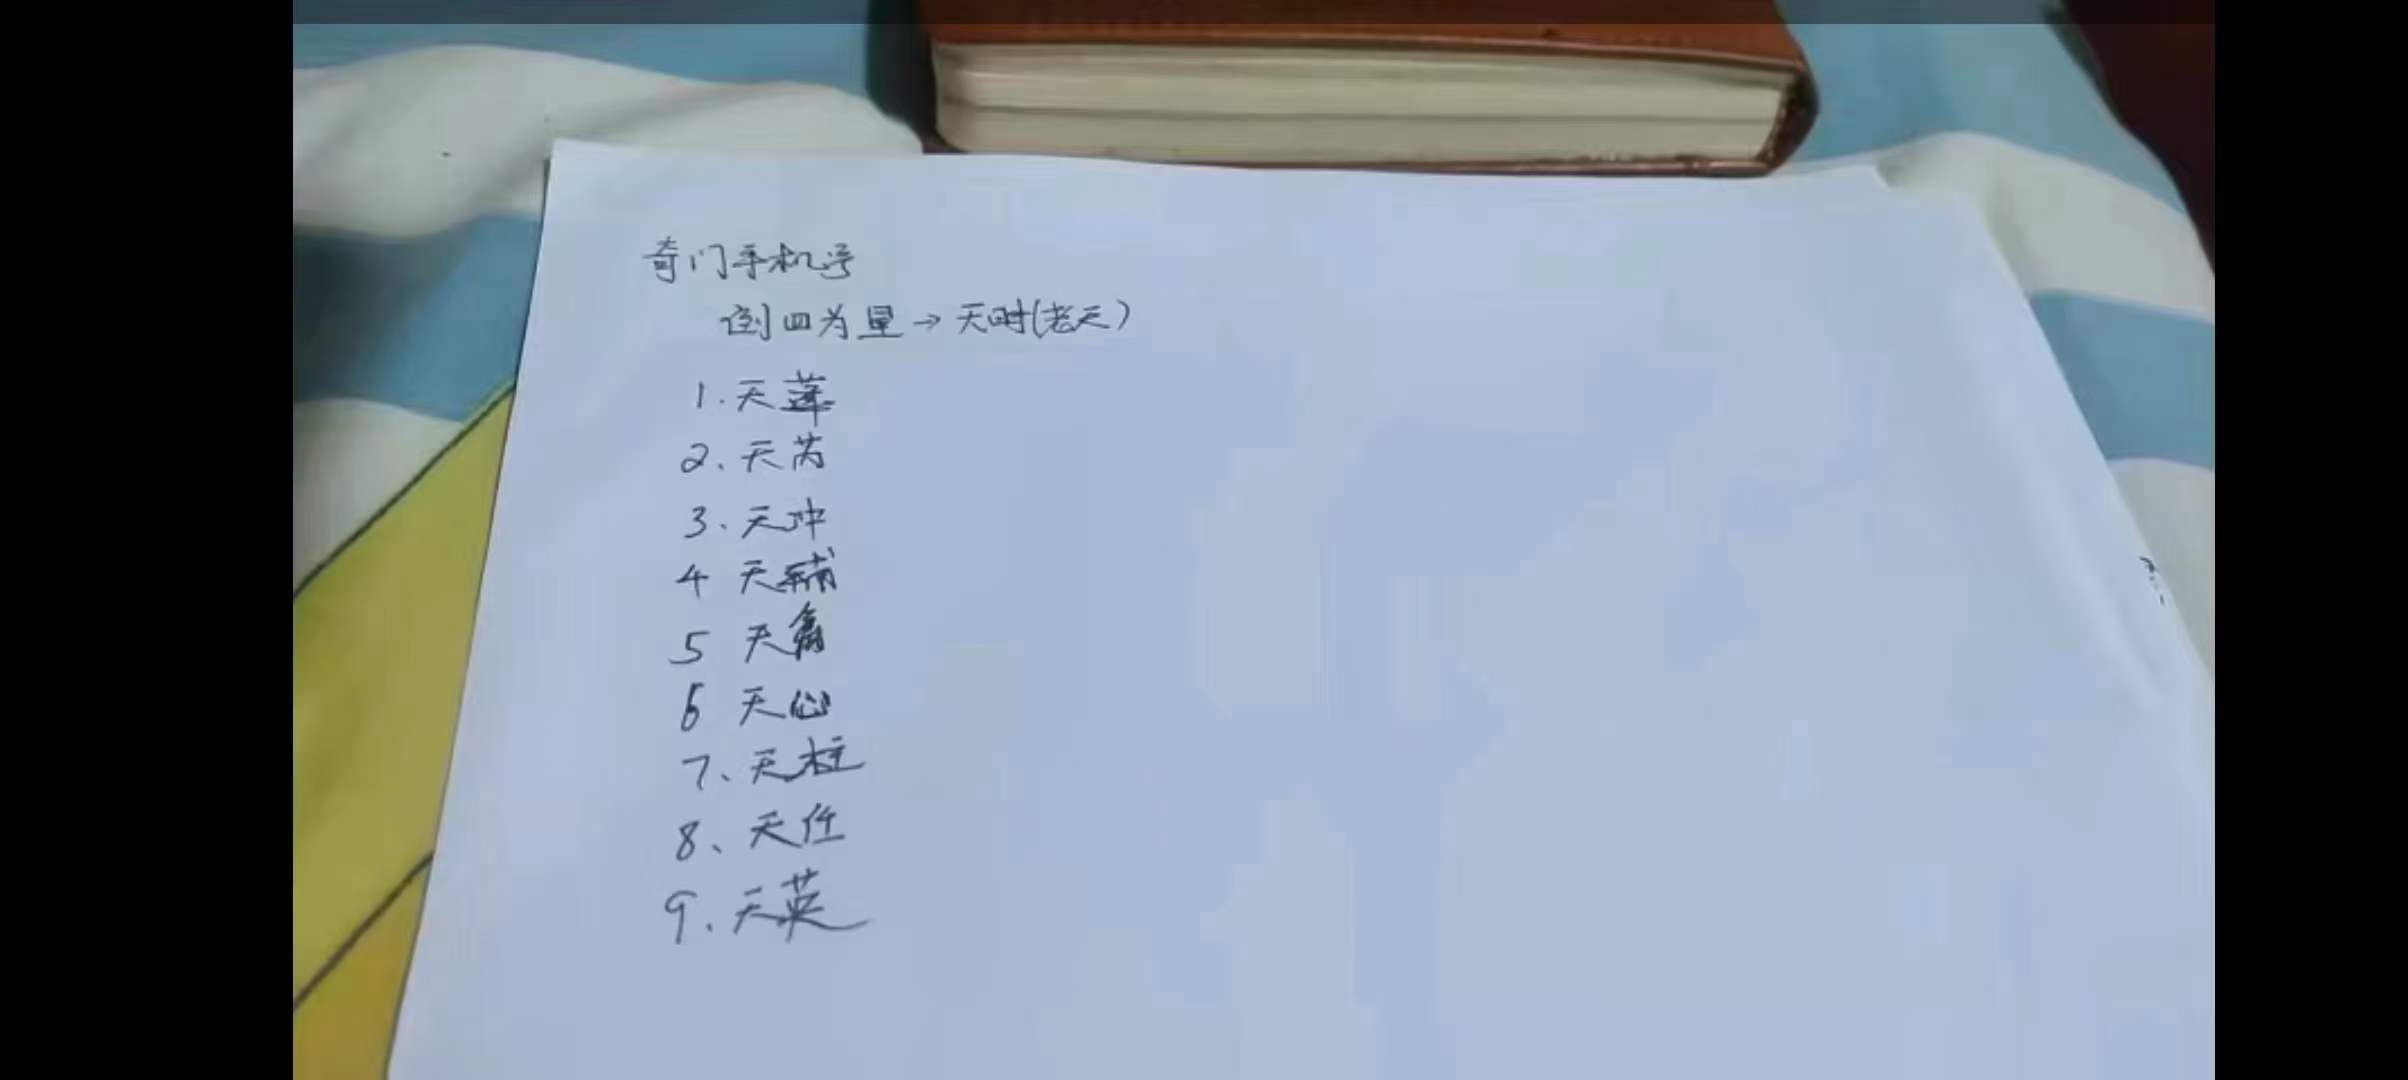 奇门手机号
倒四为星→天时(老天)
1.天蓬
2、天芮
3.天冲
4 天辅
5 天禽
6 天心
7、天柱
8、天任
9.天英